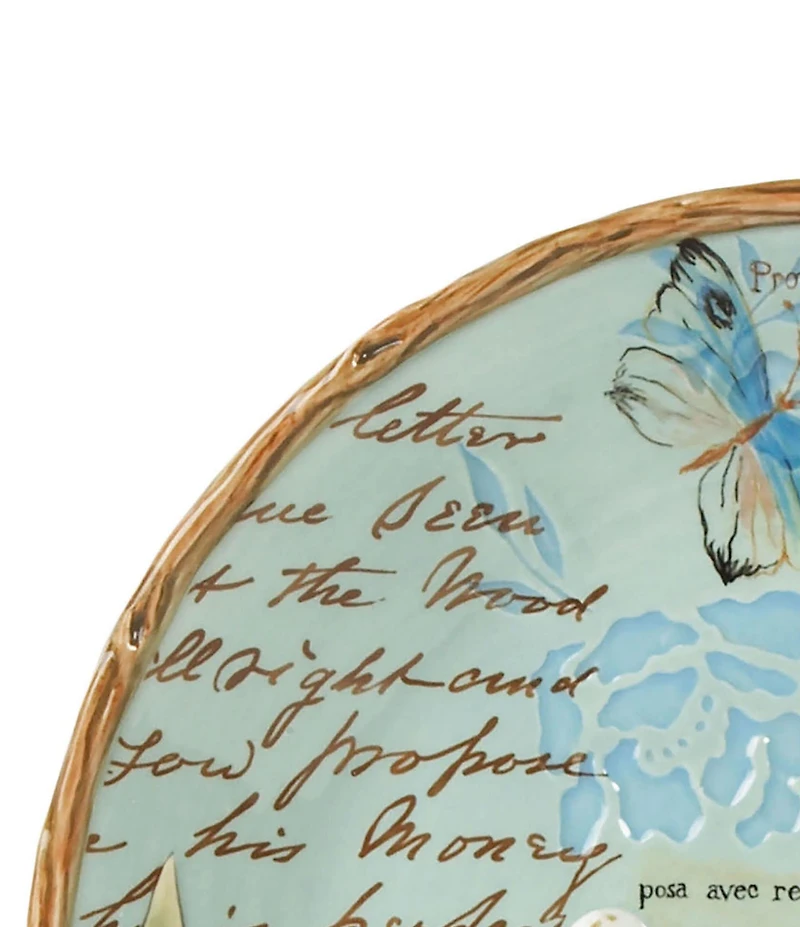 Pro
letter
ue Seen
t the Wood
ll right and
propose
his Money
posa avec re